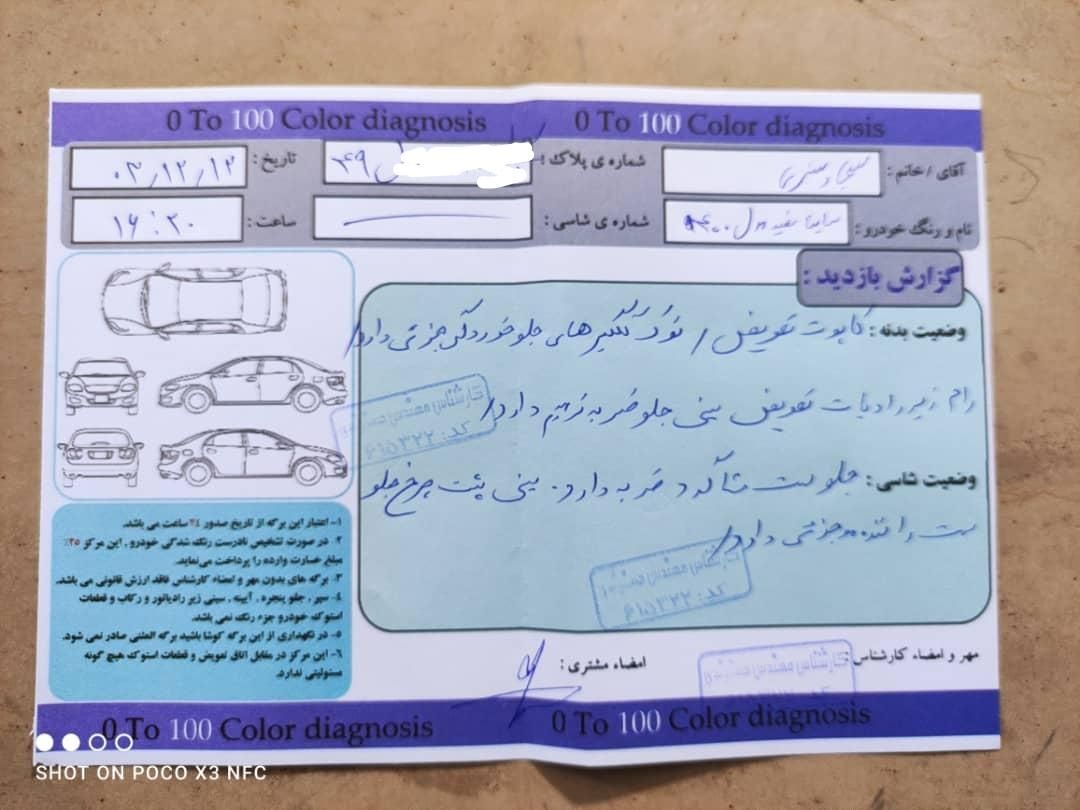 0 To 100 Color diagnosis 0 To 100 Color diagnosis
آقای / خانم :
شماره ی پلاک : ۴۹
تاریخ : ۰۳/۱۲/۱۲
نام و رنگ خودرو : ساینا سفید مدل ۱۴۰۰
شماره ی شاسی :
ساعت : ۱۶:۳۰
گزارش بازدید :
وضعیت بدنه : کاپوت تعویض / نوک گلگیرهای جلو خوردگی جزئی دارد /
رام زیر رادیات تعویض سینی جلو ضربه ترمیم دارد /
وضعیت شاسی : جلو سمت شاگرد ضربه دارد. سینی پشت چرخ جلو
سمت راننده جزئی دارد /
کارشناس مهندس
کد: ۶۱۵۳۲۲
کارشناس مهندس
کد: ۶۱۵۳۲۲
۱- اعتبار این برگه از تاریخ صدور ۲۴ ساعت می باشد.
۲- در صورت تشخیص نادرست رنگ شدگی خودرو , این مرکز ۲۵٪
مبلغ خسارت وارده را پرداخت می‌نماید.
۳- برگه های بدون مهر و امضاء کارشناس فاقد ارزش قانونی می باشد.
۴- سپر , جلو پنجره , آیینه , سینی زیر رادیاتور و رکاب و قطعات
استوک خودرو جزء رنگ نمی باشد.
۵- در نگهداری از این برگه کوشا باشید برگه المثنی صادر نمی شود.
۶- این مرکز در مقابل اتاق تعویض و قطعات استوک هیچ گونه
مسئولیتی ندارد.
مهر و امضاء کارشناس :
کارشناس مهندس
امضاء مشتری :
0 To 100 Color diagnosis 0 To 100 Color diagnosis
SHOT ON POCO X3 NFC